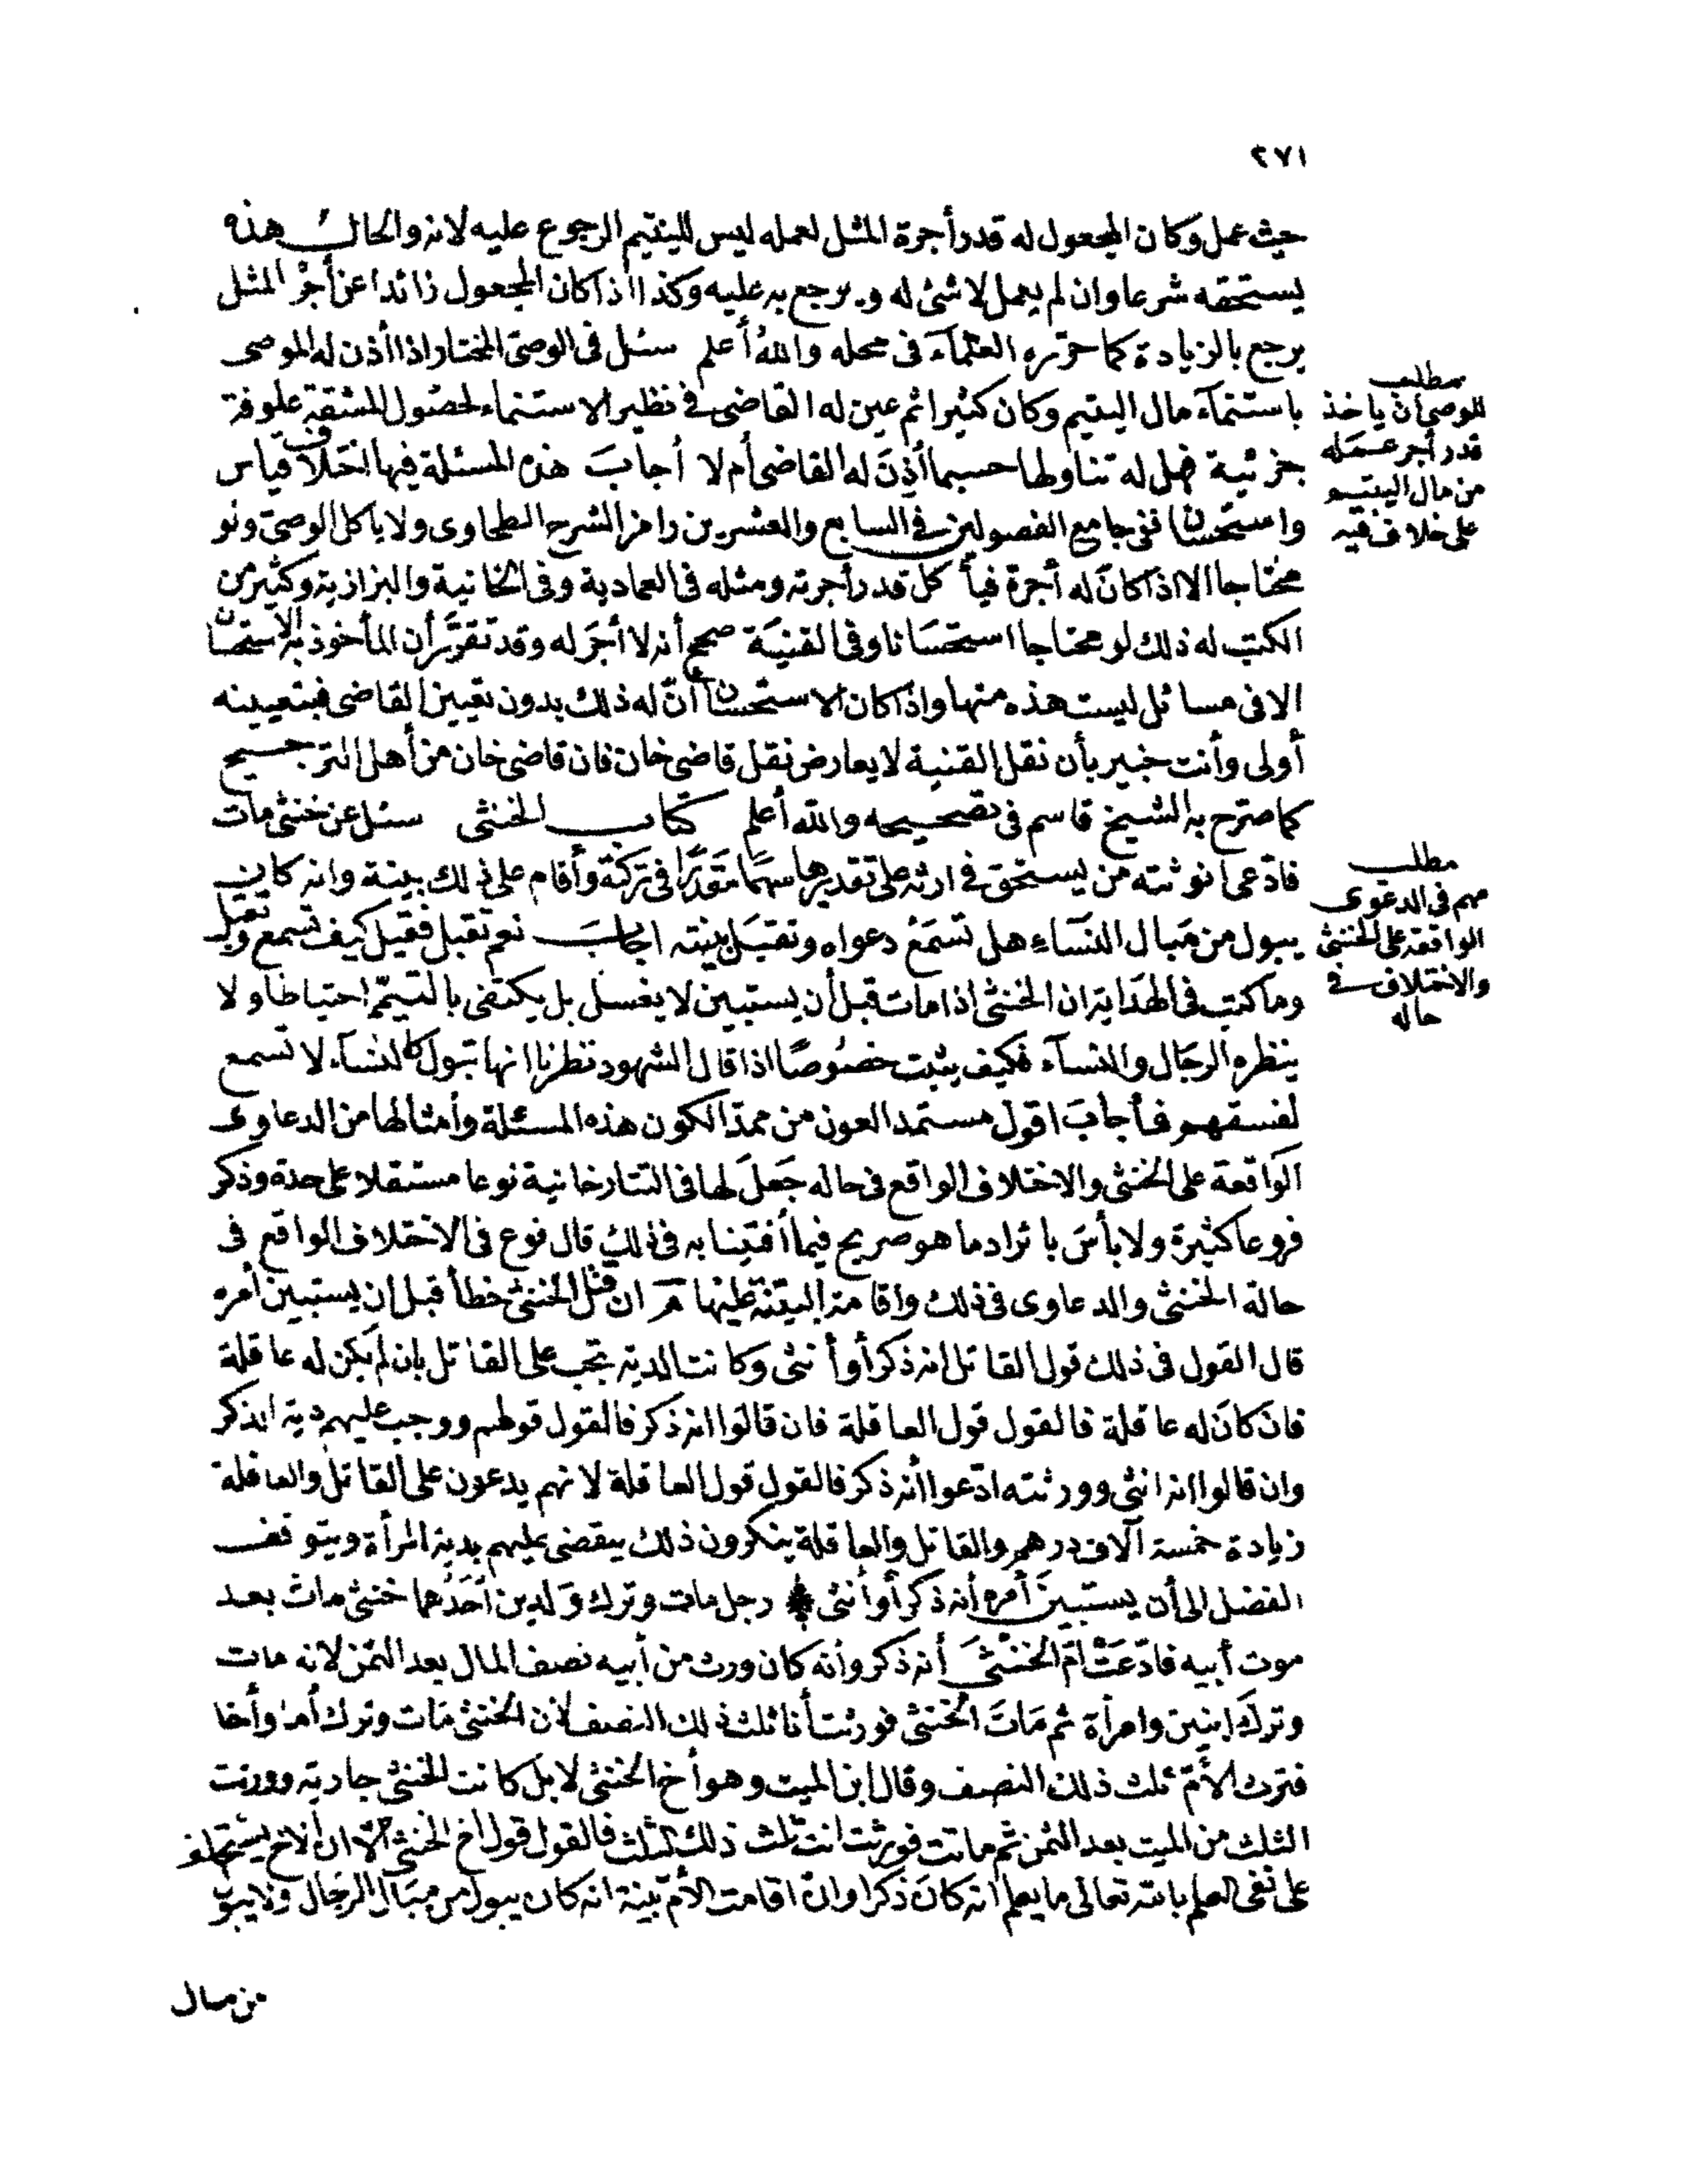 ٢٧١
حيث عمل وكان المجعول له قدر أجرة المثل لعمله ليس لليتيم الرجوع عليه لانه والحال هذه
يستحقه شرعا وان لم يعمل لا شئ له ويرجع به عليه وكذا اذا كان المجعول زائدا عن أجر المثل
يرجع بالزيادة كما حرّره العلمآء فى محله والله أعلم سئل فى الوصى المختار اذا أذن له الموصى
باستنمآء مال اليتيم وكان كثيرا ثم عين له القاضى فى نظير الاستنماء لحصول المشقة علوفة
جزئية فهل له تناولها حسبما أذن له القاضى أم لا أجاب هذه المسئلة فيها اختلاف قياس
واستحسان ففى جامع الفصولين فى السابع والعشرين رامز الشرح الطحاوى ولا ياكل الوصى ولو
محتاجا الا اذا كان له أجرة فيأكل قدر أجرته ومثله فى العمادية وفى الخانية والبزازية وكثير من
الكتب له ذلك لو محتاجا استحسانا وفى القنية صحح أنه لا أجر له وقد تقرّر أن المأخوذ به الاستحسان
الا فى مسائل ليست هذه منها واذا كان الاستحسان أنّ له ذلك بدون تعيين القاضى فبتعيينه
أولى وأنت خبير بأن نقل القنية لا يعارض نقل قاضى خان فان قاضى خان من أهل الترجيح
كما صرّح به الشيخ قاسم فى تصحيحه والله أعلم كتاب الخنثى سئل عن خنثى مات
فادّعى انوثته من يستحق فى ارثه على تقديرها سهما مقدّرا فى تركته وأقام على ذلك بينة وانه كان
يبول من مبال النسآء هل تسمع دعواه وتقبل بينته اجاب نعم تقبل فقيل كيف تسمع وتقبل
وما كتب فى الهداية ان الخنثى اذا مات قبل أن يستبين لا يغسل بل يكتفى بالتيمّم احتياطا ولا
ينظره الرجال والنسآء فكيف يثبت خصوصًا اذا قال الشهود نظرنا انها تبول كالنسآء لا تسمع
لفسقهم فأجاب اقول مستمد العون من ممدّ الكون هذه المسئلة وأمثالها من الدعاوى
الواقعة على الخنثى والاختلاف الواقع فى حاله جعل لها فى التتارخانية نوعا مستقلا على حدة وذكر
فروعا كثيرة ولا بأس بايراد ما هو صريح فيما أفتينا به فى ذلك قال نوع فى الاختلاف الواقع فى
حالة الخنثى والدعاوى فى ذلك واقامة البينة عليها م ان قتل الخنثى خطأ قبل ان يستبين أمره
قال القول فى ذلك قول القاتل انه ذكر أو أنثى وكانت الدية تجب على القاتل بان لم يكن له عاقلة
فان كان له عاقلة فالقول قول العاقلة فان قالوا انه ذكر فالقول قولهم ووجب عليهم دية الذكر
وان قالوا انه انثى وورثته ادّعوا أنه ذكر فالقول قول العاقلة لانهم يدعون على القاتل والعاقلة
زيادة خمسة آلاف درهم والقاتل والعاقلة ينكرون ذلك يقضى عليهم بدية المرأة ويتوقف
الفضل الى أن يستبين أمره أنه ذكر أو أنثى رجل مات وترك ولدين أحدهما خنثى مات بعد
موت أبيه فادّعت امّ الخنثى أنه ذكر وأنه كان ورث من أبيه نصف المال بعد الثمن لانه مات
وترك ابنين وامرأة ثم مات الخنثى فورثت أنا ثلث ذلك النصف لأن الخنثى مات وترك أما وأخا
فترث الأمّ ثلث ذلك النصف وقال ابن الميت وهو أخ الخنثى لا بل كانت الخنثى جارية وورثت
الثلث من الميت بعد الثمن ثم ماتت فورثت انت ثلث ذلك الثلث فالقول قول اخ الخنثى الا ان الاخ يستحلف
على نفى العلم بالله تعالى ما يعلم انه كان ذكرا وان اقامت الأمّ بينة انه كان يبول من مبال الرجال ولا يبول
من مبال
مطلب
للوصى أن ياخذ
قدر أجر عمله
من مال اليتيم
على خلاف فيه
مطلب
مهم فى الدعوى
الواقعة على الخنثى
والاختلاف فى
حاله